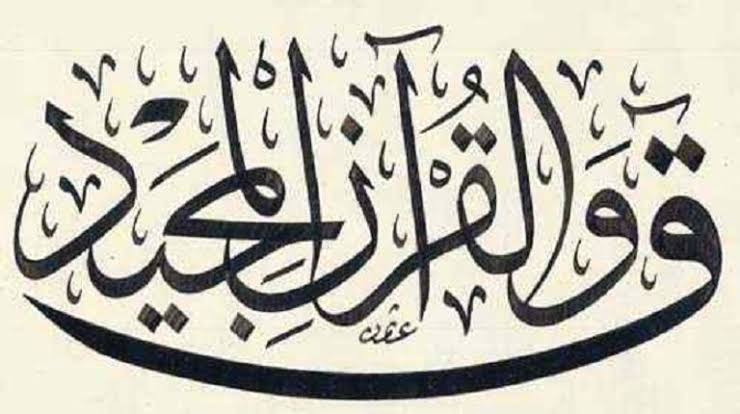 قۤ وَالْقُرْآنِ الْمَجِيدِ